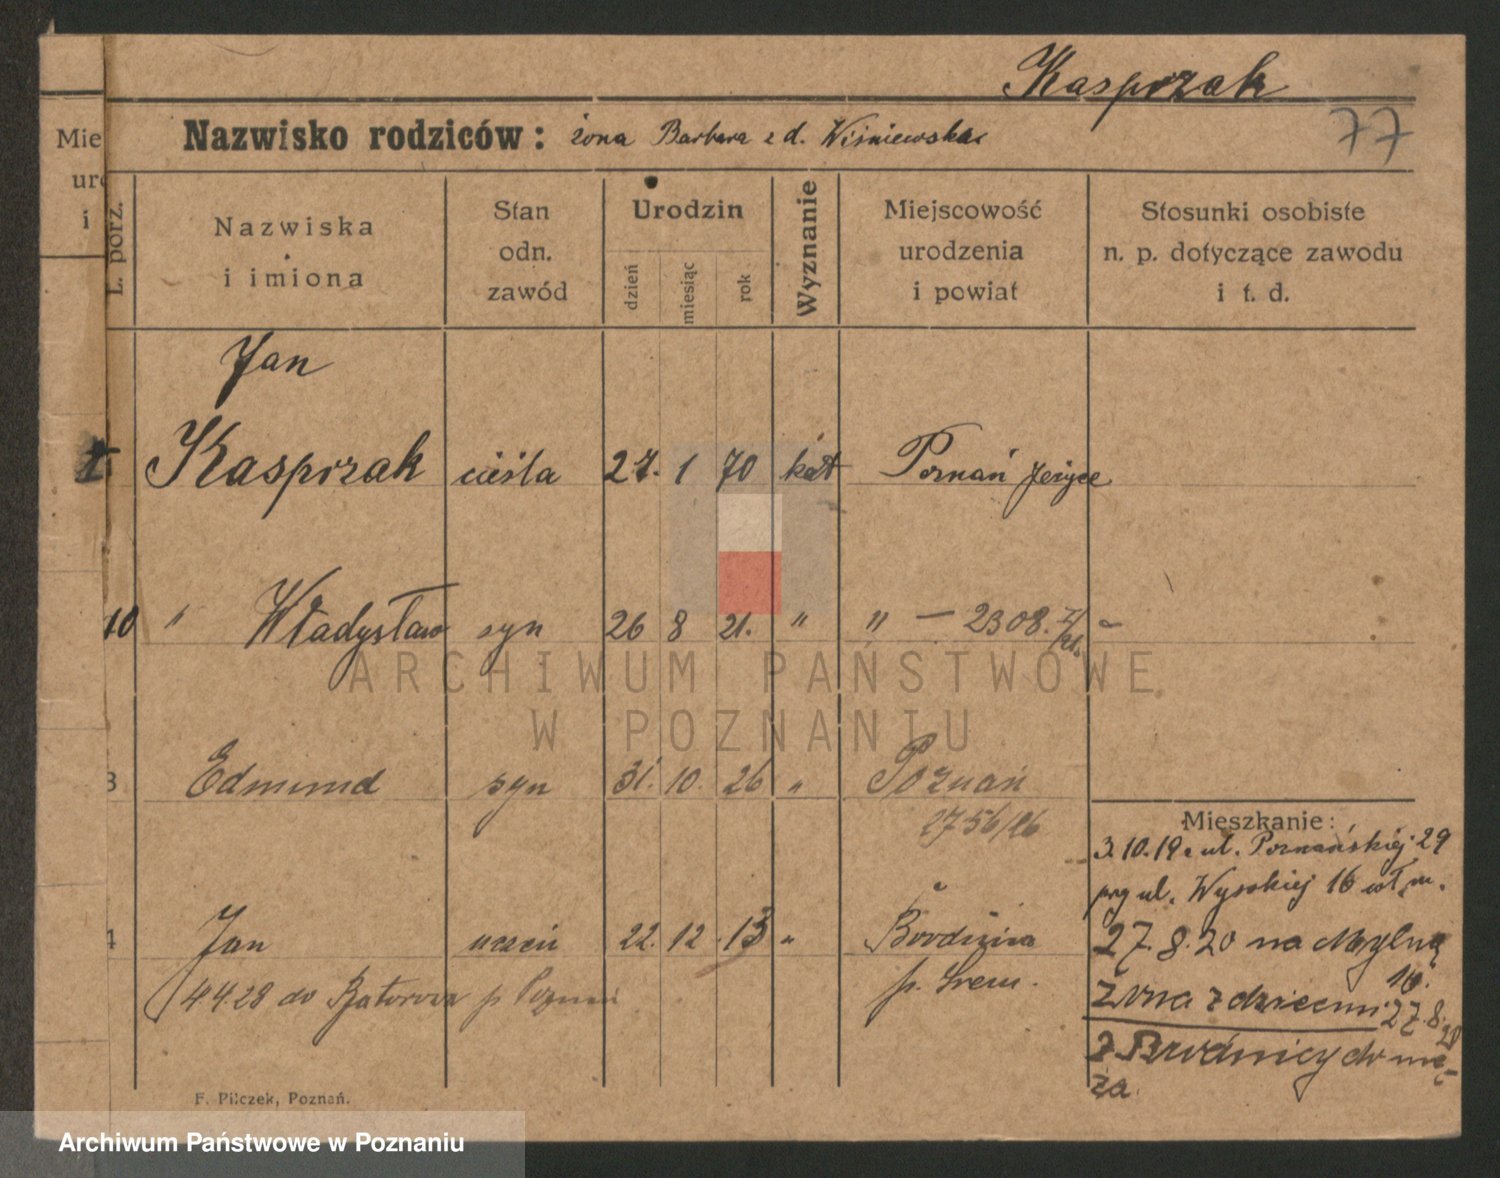 Kasprzak
77
Nazwisko rodziców: żona Barbara z d. Wiśniewska
Mie
uro
i
L. porz.
Nazwiska
i imiona
Stan
odn.
zawód
Urodzin
dzień
miesiąc
rok
Wyznanie
Miejscowość
urodzenia
i powiat
Stosunki osobiste
n. p. dotyczące zawodu
i t. d.
Jan
Kasprzak cieśla 27. 1 70 kat Poznań Jeżyce
10 " Władysław syn 26 8 21. " " — 2308.
3 Edmund syn 31. 10. 26 " Poznań
2756/26
4 Jan uczeń 22. 12. 13 "
p. Śrem.
4.4.28 do p Poznań
Mieszkanie:
3.10.19 z ul. Poznańskiej 29
prz ul. Wysokiej 16
27.8.20 na Mylną
16.
Żona z dziećmi 27.8.
20
z Brodnicy do mę-
ża.
F. Pilczek, Poznań.
ARCHIWUM PAŃSTWOWE
W POZNANIU
Archiwum Państwowe w Poznaniu